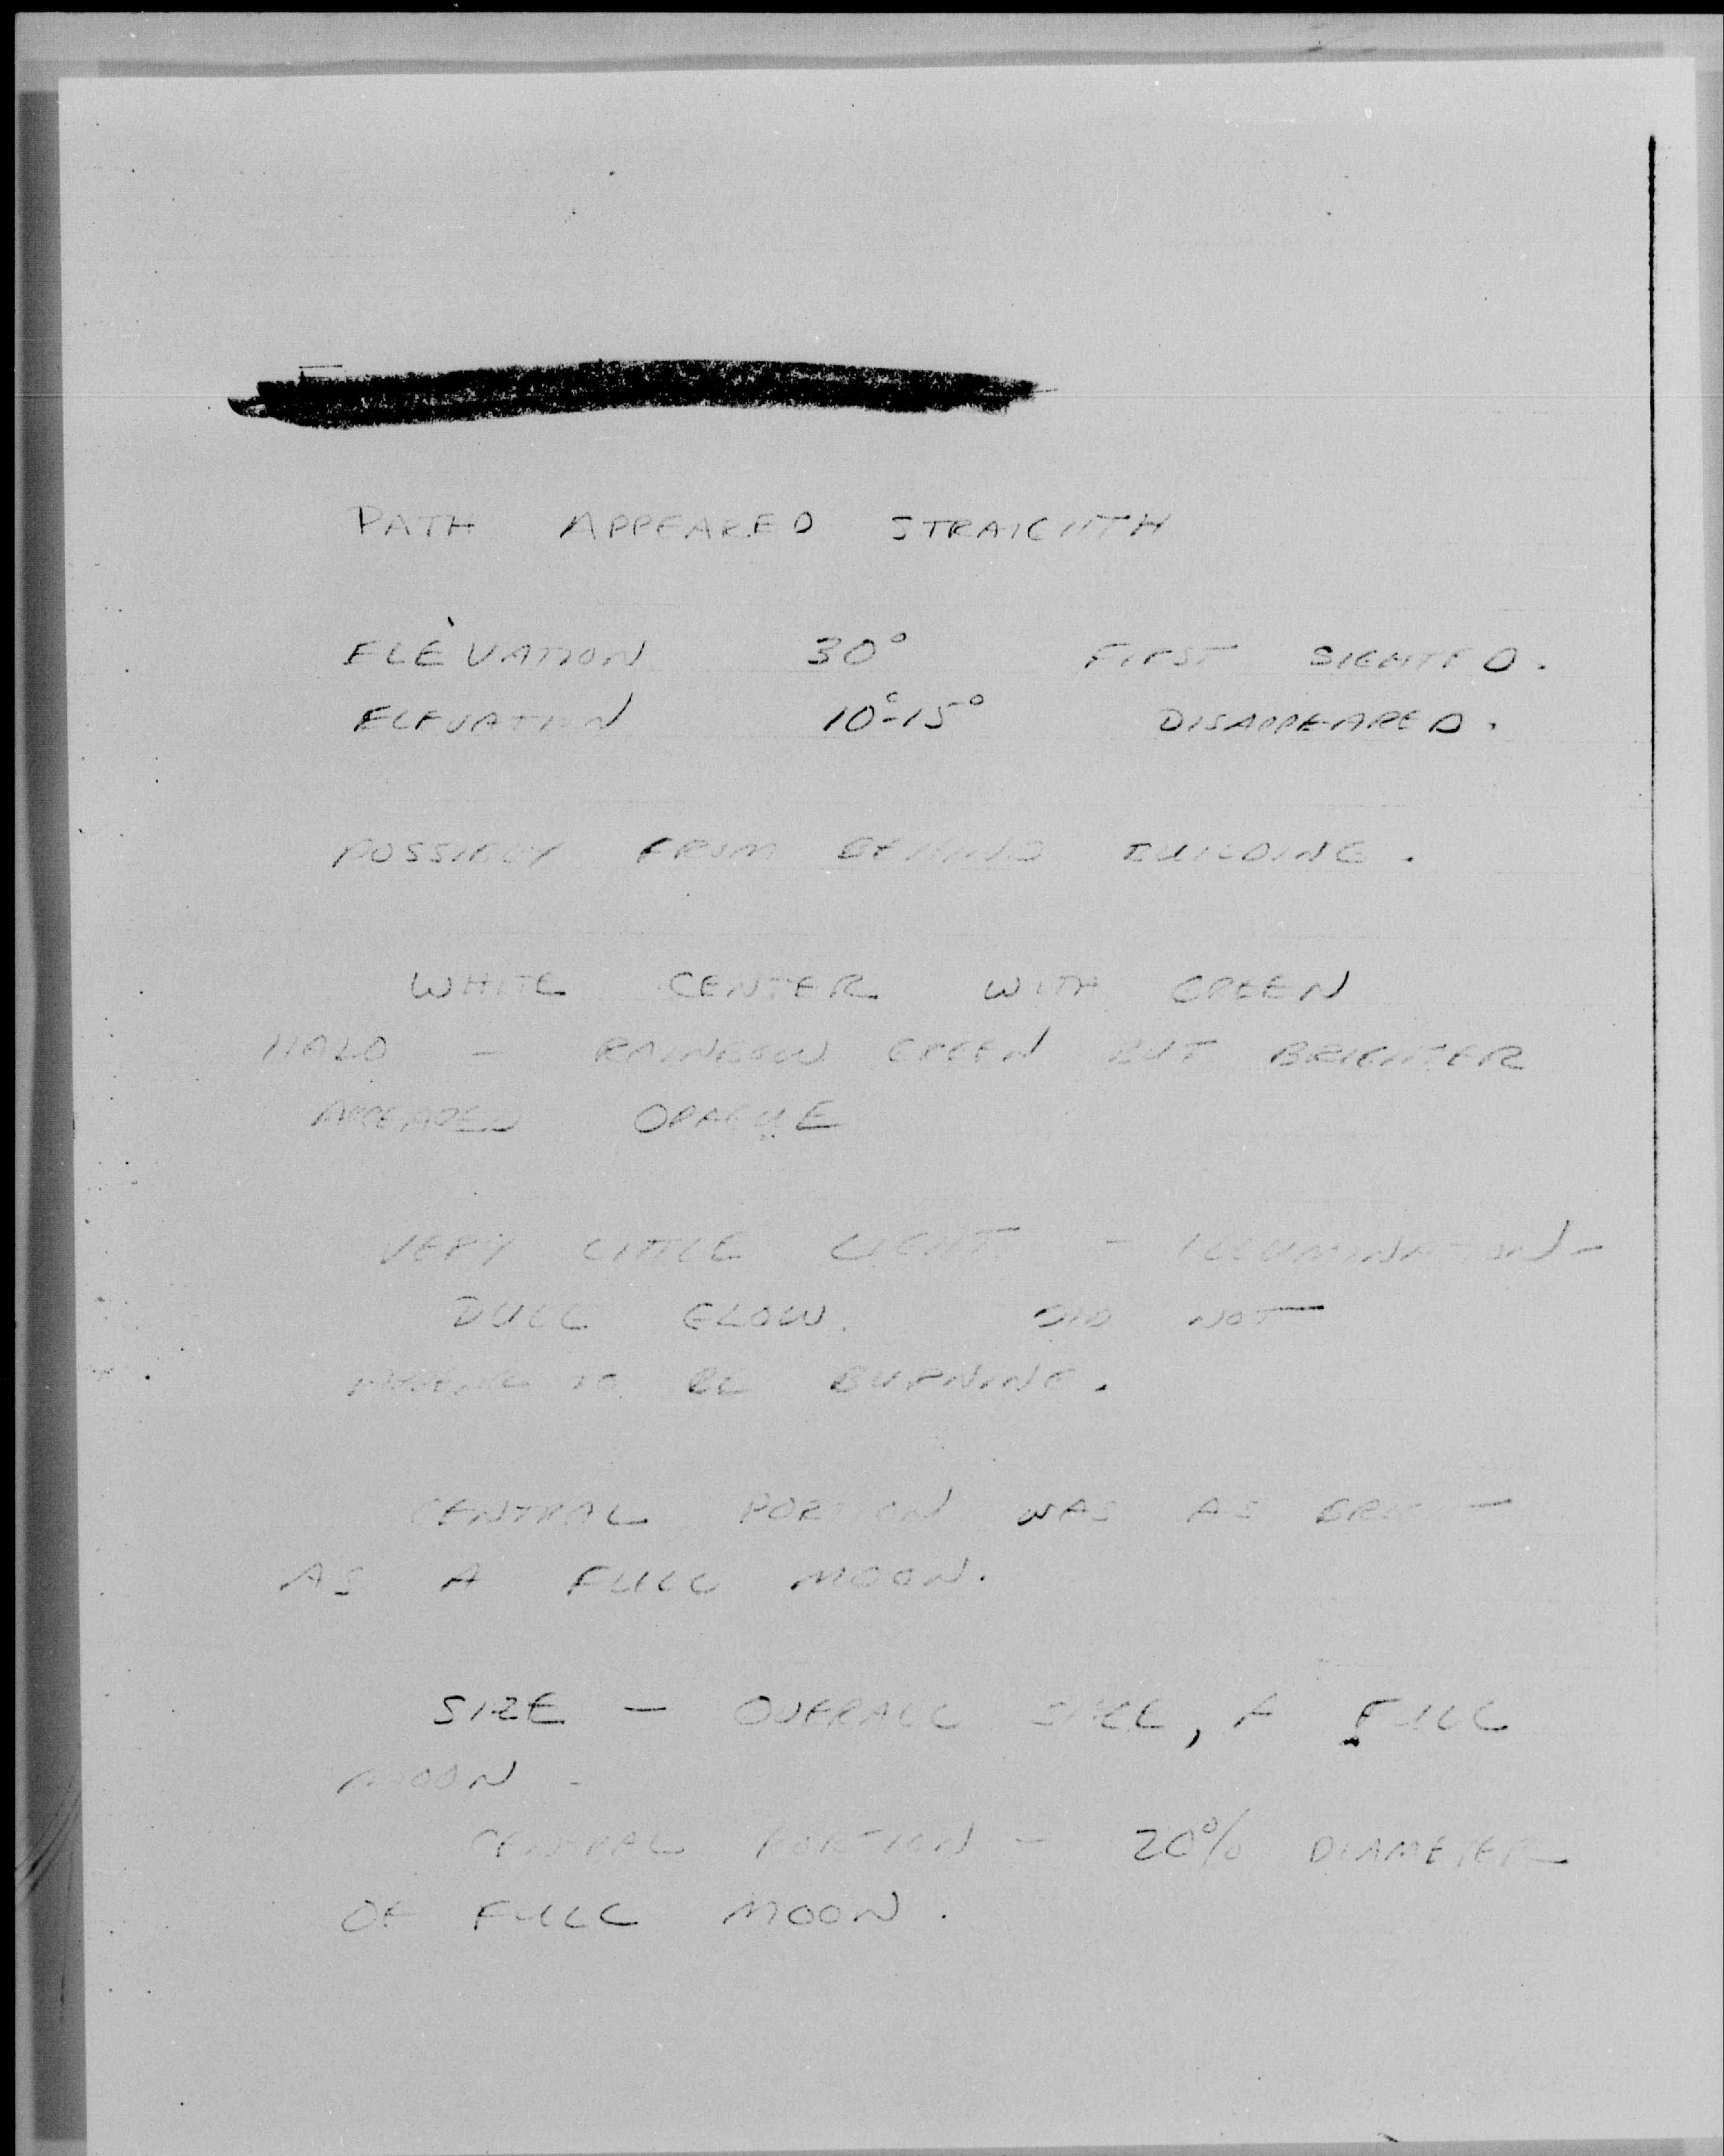 PATH APPEARED STRAIGHTH
ELEVATION 30° FIRST SIGHTED.
ELEVATION 10°-15° DISAPPEARED.
POSSIBLY FROM BEHIND BUILDING.
WHITE CENTER WITH GREEN
HALO - RAINBOW GREEN BUT BRIGHTER
APPEARED OPAQUE
VERY LITTLE LIGHT - ILLUMINATION -
DULL GLOW. DID NOT
APPEAR TO BE BURNING.
CENTRAL PORTION WAS AS
AS A FULL MOON.
SIZE - OVERALL SIZE, A FULL
MOON -
CENTRAL PORTION - 20% DIAMETER
OF FULL MOON.